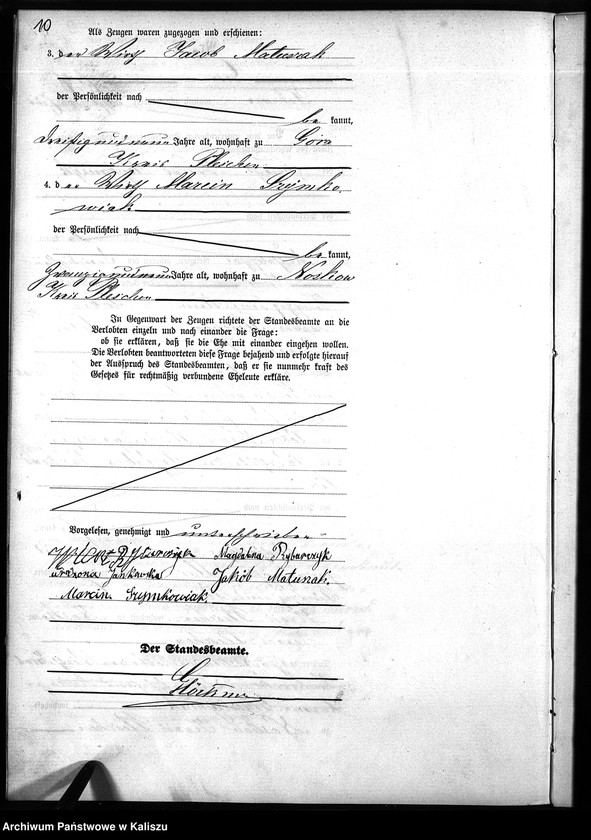 10
Als Zeugen waren zugezogen und erschienen:
3. der Wirth Jacob Matuszak
der Persönlichkeit nach
be kannt,
dreißig und neun Jahre alt, wohnhaft zu Góra
Kreis Pleschen.
4. der Wirth Marcin Szymko-
wiak
der Persönlichkeit nach
be kannt,
zwanzig und neun Jahre alt, wohnhaft zu Noskow
Kreis Pleschen
In Gegenwart der Zeugen richtete der Standesbeamte an die
Verlobten einzeln und nach einander die Frage:
ob sie erklären, daß sie die Ehe mit einander eingehen wollen.
Die Verlobten beantworteten diese Frage bejahend und erfolgte hierauf
der Ausspruch des Standesbeamten, daß er sie nunmehr kraft des
Gesetzes für rechtmäßig verbundene Eheleute erkläre.
Vorgelesen, genehmigt und unterschrieben
Magdalena Rybarczyk
Jankowska Jakób Matuszak.
Marcin Szymkowiak.
Der Standesbeamte.
Archiwum Państwowe w Kaliszu